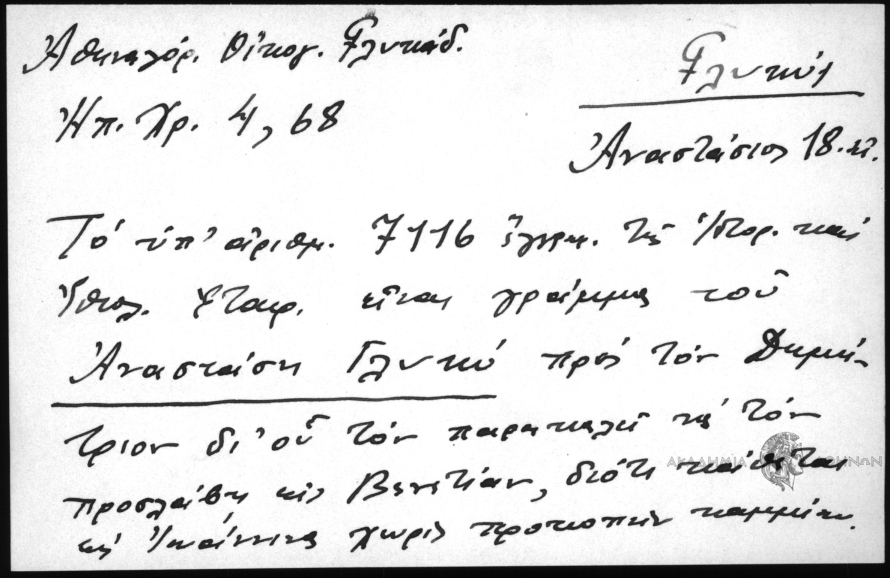 Ἀθηναγόρ. Οἰκογ. Γλυκάδ.
Γλυκύς
Ἠπ. Χρ. 4, 68
Ἀναστάσιος 18. αἰ.
Τό ὑπ' ἀριθμ. 7116 ἔγγρ. τῆς Ἱστορ. καί
Ἐθνολ. Ἑταιρ. εἶναι γράμμα τοῦ
Ἀναστάση Γλυκύ πρός τόν Δημή-
τριον δι' οὗ τόν παρακαλεῖ νά τόν
προσλάβῃ εἰς Βενετίαν, διότι κάθεται
εἰς Ἰωάννινα χωρίς προκοπήν καμμίαν.
ΑΚΑΔΗΜΙΑ ΑΘΗΝΩΝ